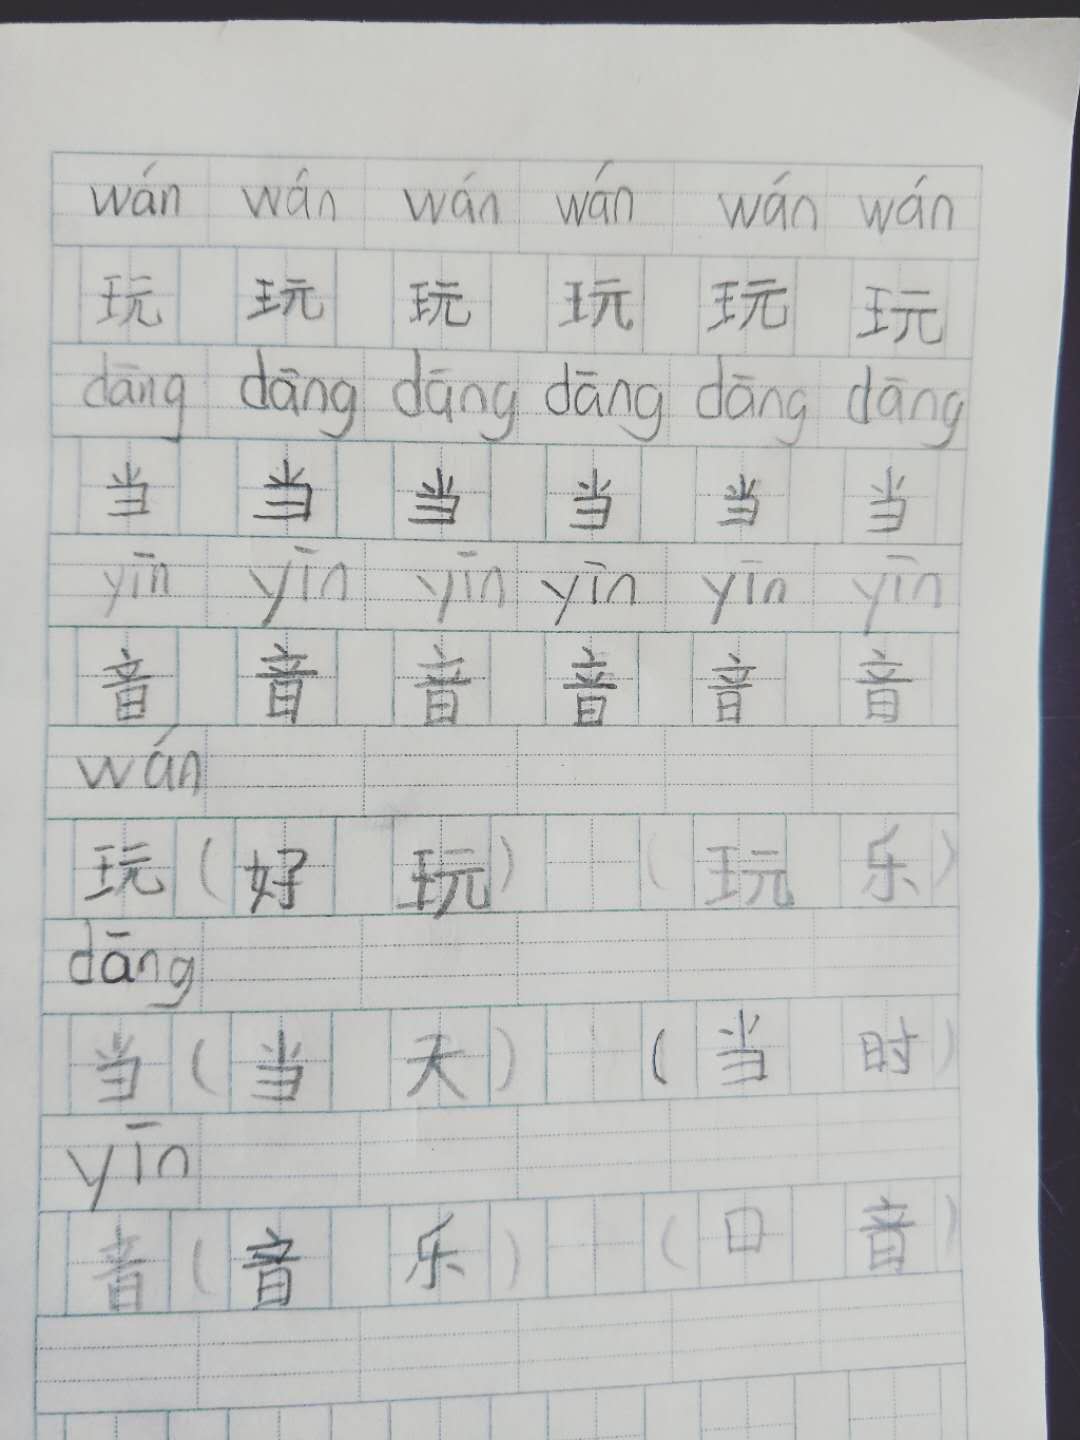 wán wán wán wán wán wán
玩 玩 玩 玩 玩 玩
dāng dāng dāng dāng dāng dāng
当 当 当 当 当 当
yīn yīn yīn yīn yīn yīn
音 音 音 音 音 音
wán
玩（好 玩） （玩 乐）
dāng
当（当 天） （当 时）
yīn
音（音 乐） （口 音）